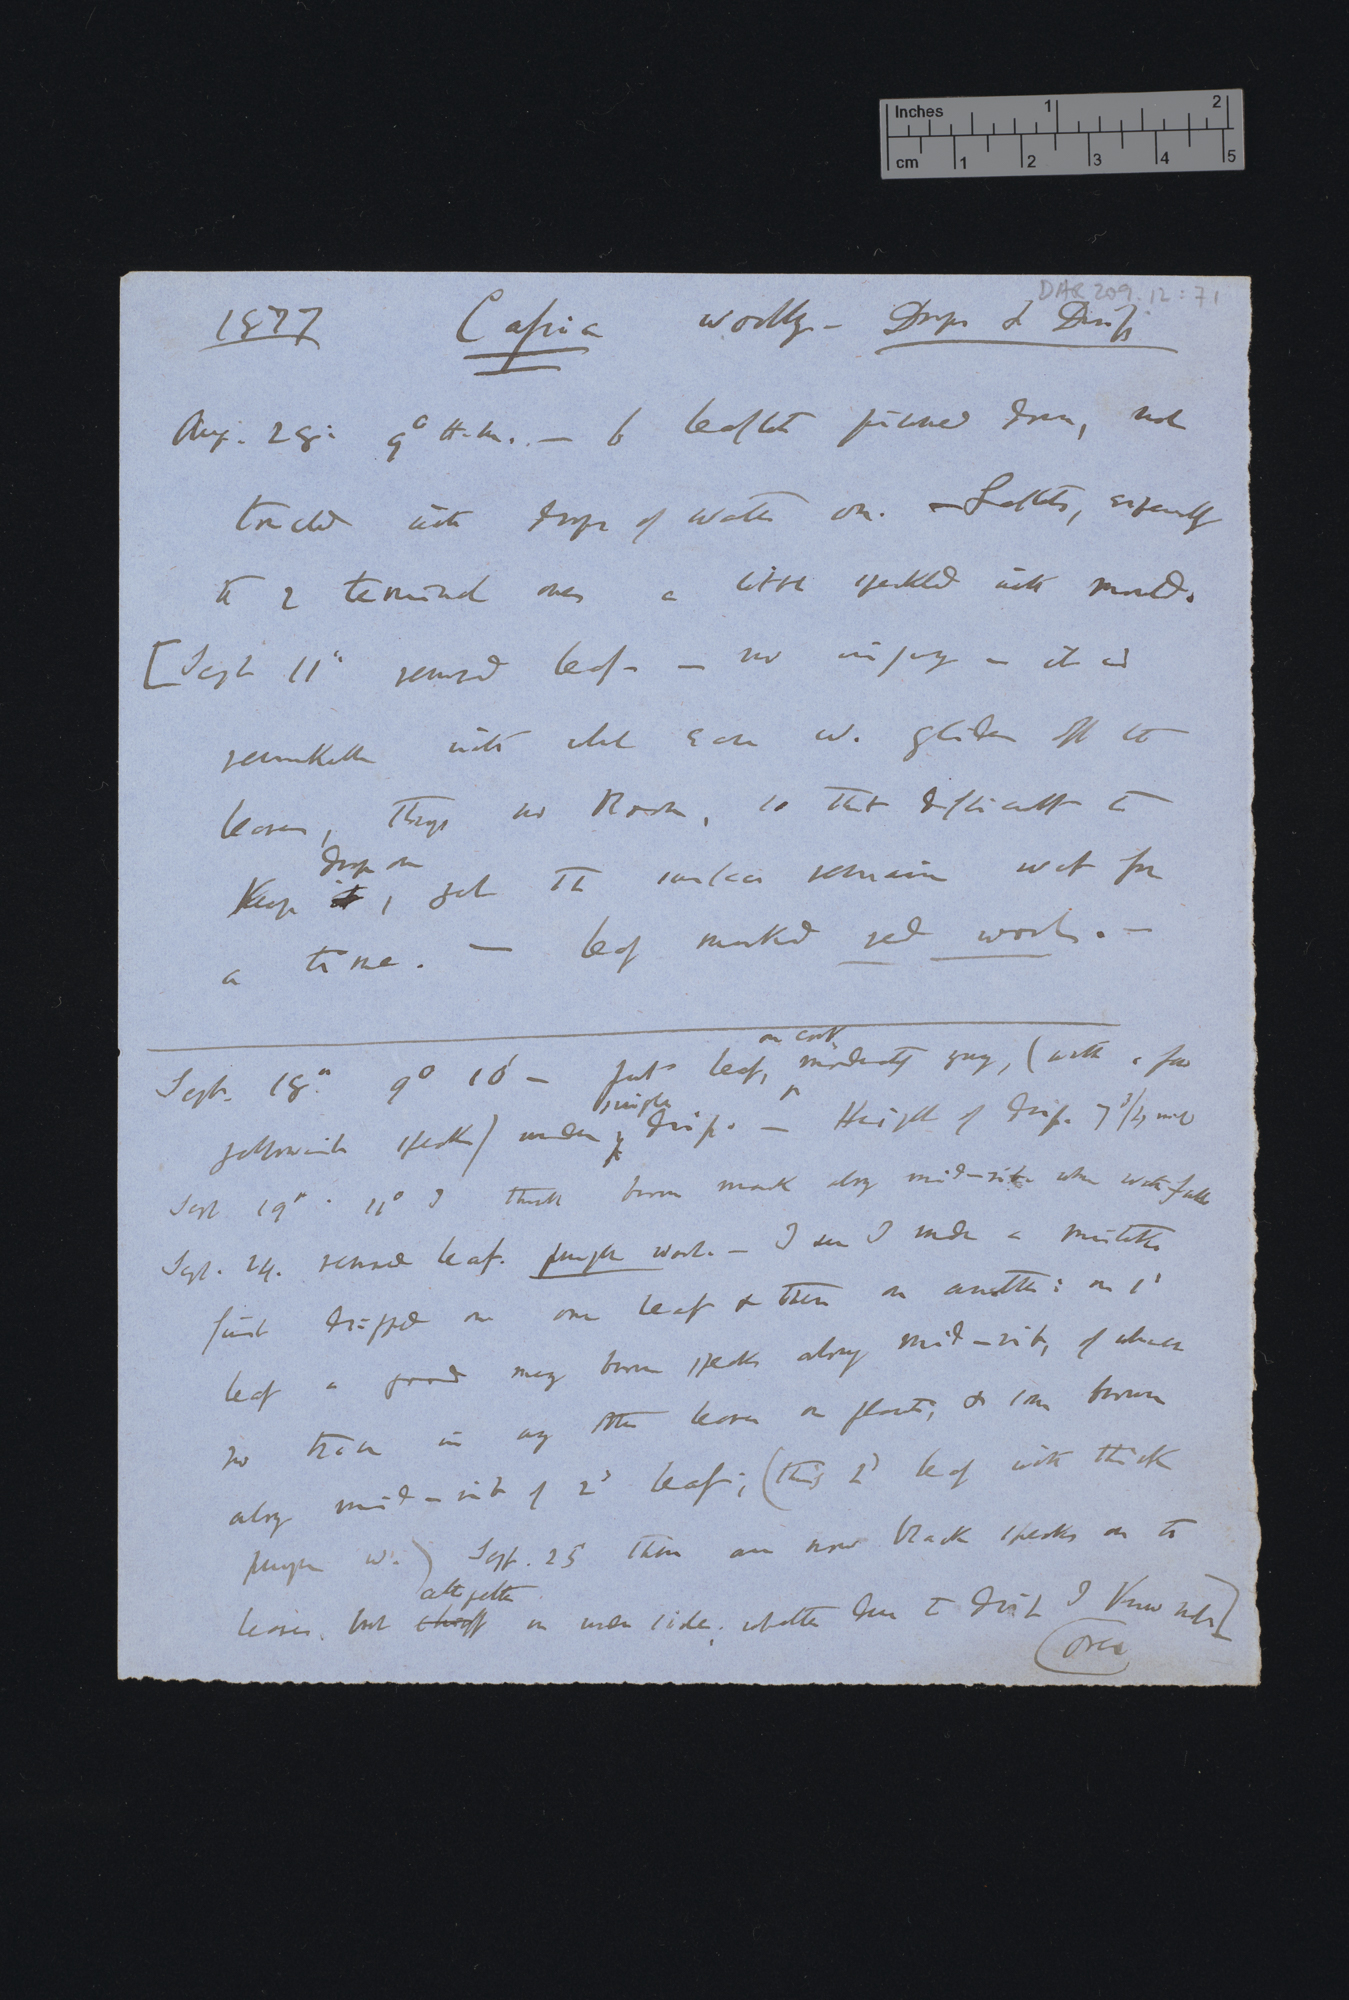 Inches 1 2
cm 1 2 3 4 5
DAR 209.12:71
1877 Cassia woolly - Drops & Drip
Aug. 28: 9° A.m. — 6 leaflets pinned down, not
touched with drops of water on. — Leaflets, especially
the 2 terminal ones a little speckled with mould.
[Sept 11" removed leaf — no injury — it is
remarkable with what ease w. glides off the
leaves, though no Bloom, so that difficult to
drops on
keep it, yet the surface remains wet for
a time. — leaf marked red wool. —
on cork
Sept. 18" 9° 10' — put leaf, moderately young, (with a few
simple
yellowish specks) under drip. — Height of drip. 7 3/4 inch
Sept 19" 11° I think brown mark along mid-rib where water falls
Sept. 24. removed leaf. purple wool. — I see I made a mistake
first dripped on one leaf & then on another: on 1'
leaf a good many brown specks along mid-rib, of which
no trace in any other leaves on plants, & some brown
along mid-rib of 2' leaf; (this 2' leaf with thick
purple w.) Sept. 25 there are now black specks on the
altogether
leaves, but chiefly on under side; whether due to drip I know not]
(over